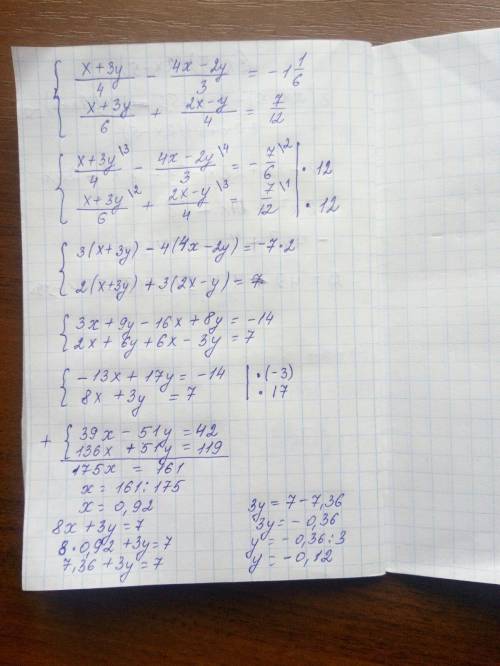 { (x+3y)/4 - (4x-2y)/3 = -1 1/6
(x+3y)/6 + (2x-y)/4 = 7/12
{ (x+3y)/4 \3 - (4x-2y)/3 \4 = - 7/6 \2 | · 12
(x+3y)/6 \2 + (2x-y)/4 \3 = 7/12 \1 | · 12
{ 3(x+3y) - 4(4x-2y) = -7·2
2(x+3y) + 3(2x-y) = 7
{ 3x + 9y - 16x + 8y = -14
2x + 6y + 6x - 3y = 7
{ -13x + 17y = -14 | · (-3)
8x + 3y = 7 | · 17
+ { 39x - 51y = 42
136x + 51y = 119
175x = 161
x = 161 : 175
x = 0,92
8x + 3y = 7
8 · 0,92 + 3y = 7
7,36 + 3y = 7
3y = 7 - 7,36
3y = - 0,36
y = - 0,36 : 3
y = - 0,12